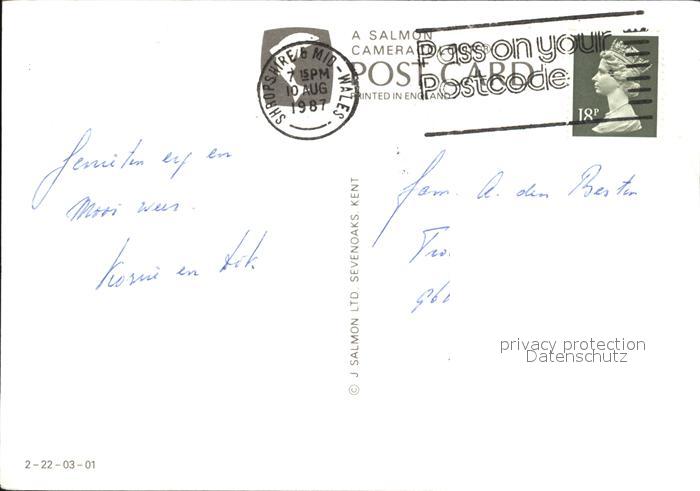 A SALMON
CAMERACOLOUR
POST CARD
PRINTED IN ENGLAND
SHROPSHIRE/& MID-WALES
7 15PM
10 AUG
1987
Pass on your
Postcode
18P
Genieten erg en
Mooi weer.
en Dik
Fam. A. den Besten
© J SALMON LTD. SEVENOAKS. KENT
privacy protection
Datenschutz
2-22-03-01